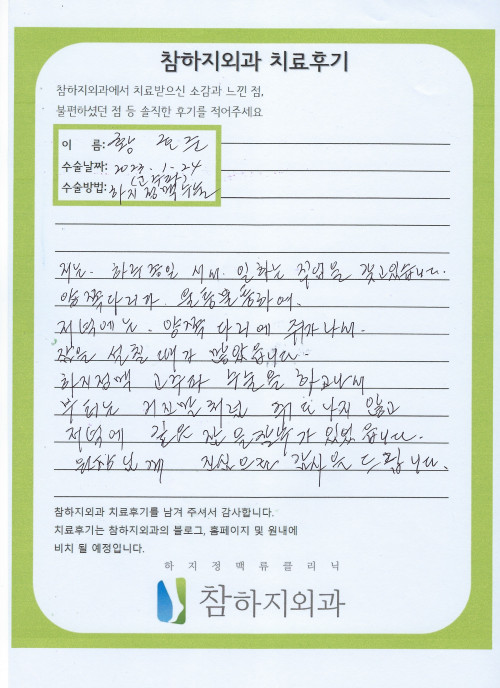 참하지외과 치료후기
참하지외과에서 치료받으신 소감과 느낀 점,
불편하셨던 점 등 솔직한 후기를 적어주세요
이 름: 황
수술날짜: 2023. 1. 24
(고주파)
수술방법: 하지정맥수술
저는. 하루종일 서서. 일하는 직업을 갖고있습니다.
양쪽다리가 퉁퉁하여.
저녁에는. 양쪽 다리에 쥐가나서.
잠을 설칠 때가 많았습니다.
하지정맥 고주파 수술을 하고나서
부터는 거짓말처럼 쥐도나지 않고
저녁에 깊은 잠을잘수가 있었습니다.
원장님께 진심으로 감사을 드립니다.
참하지외과 치료후기를 남겨 주셔서 감사합니다.
치료후기는 참하지외과의 블로그, 홈페이지 및 원내에
비치 될 예정입니다.
하지정맥류클리닉
참하지외과